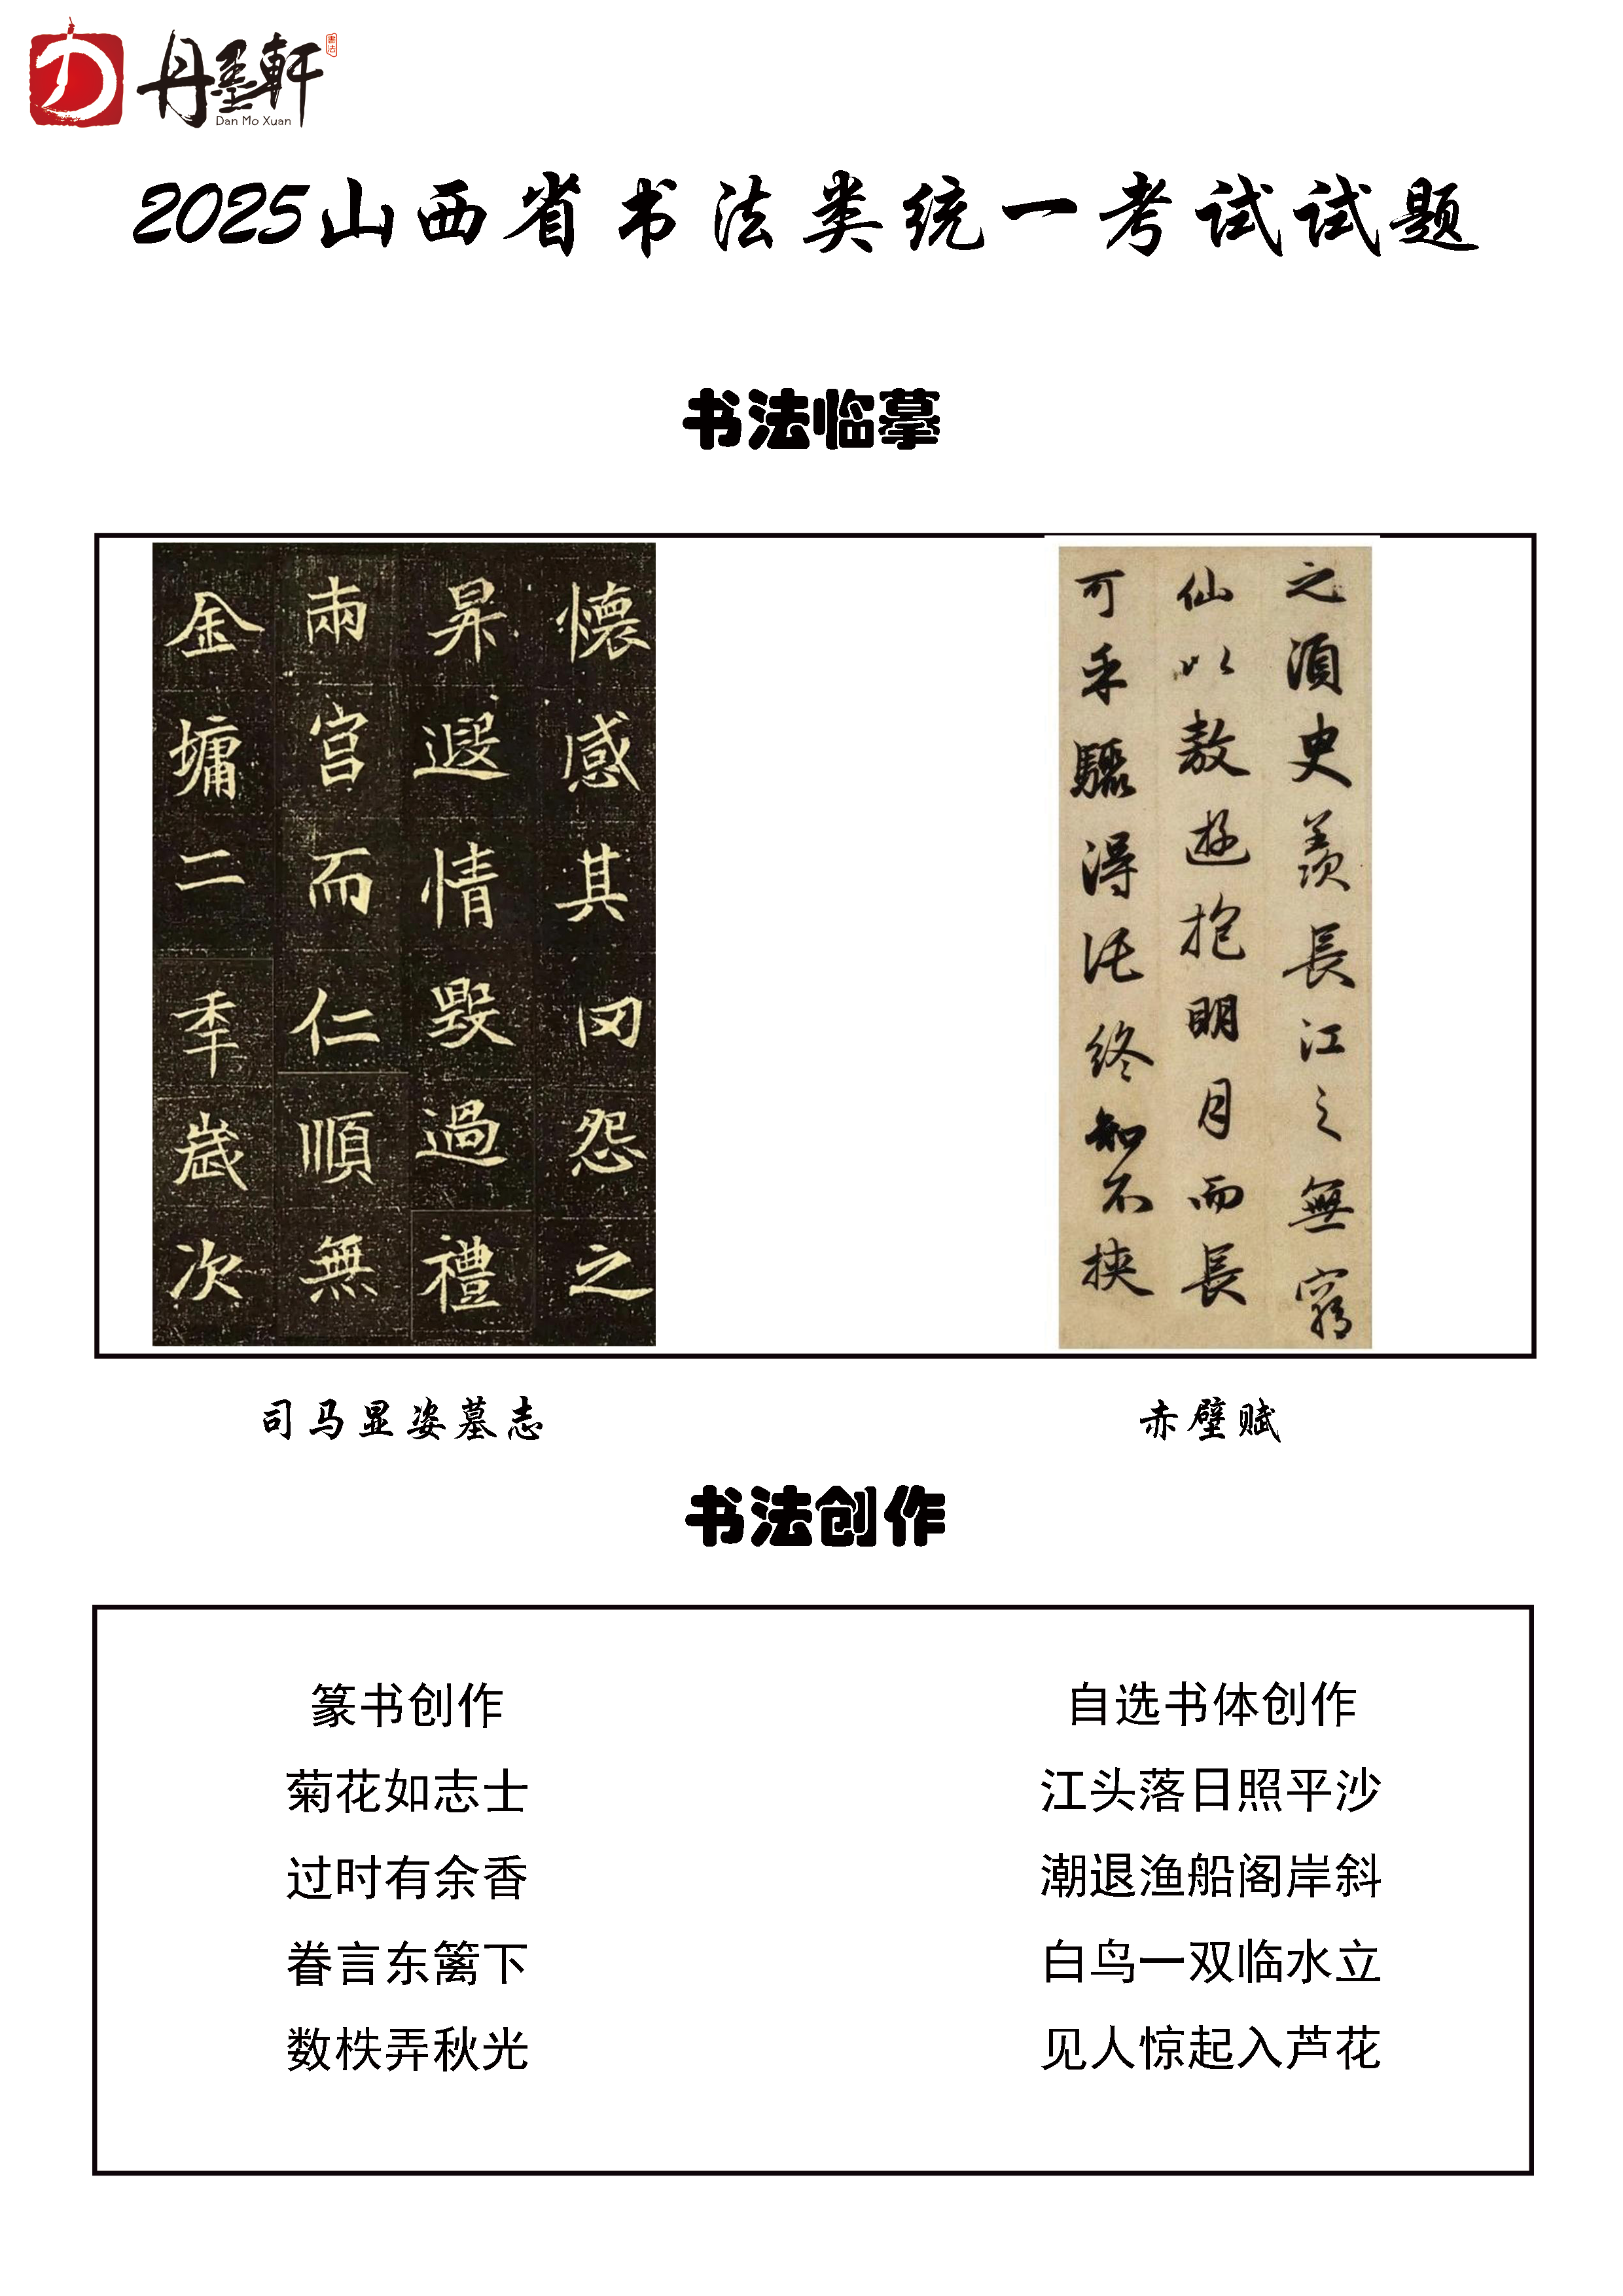 丹墨軒
書法
Dan Mo Xuan
2025山西省书法类统一考试试题
书法临摹
懷感其罔怨之
昇遐情毀過禮
兩宮而仁順無
金墉二秊歲次
之須臾羨長江之無窮
仙以敖遊抱明月而長
可乎驟得託終知不挾
司马显姿墓志
赤壁赋
书法创作
篆书创作
菊花如志士
过时有余香
眷言东篱下
数柣弄秋光
自选书体创作
江头落日照平沙
潮退渔船阁岸斜
白鸟一双临水立
见人惊起入芦花